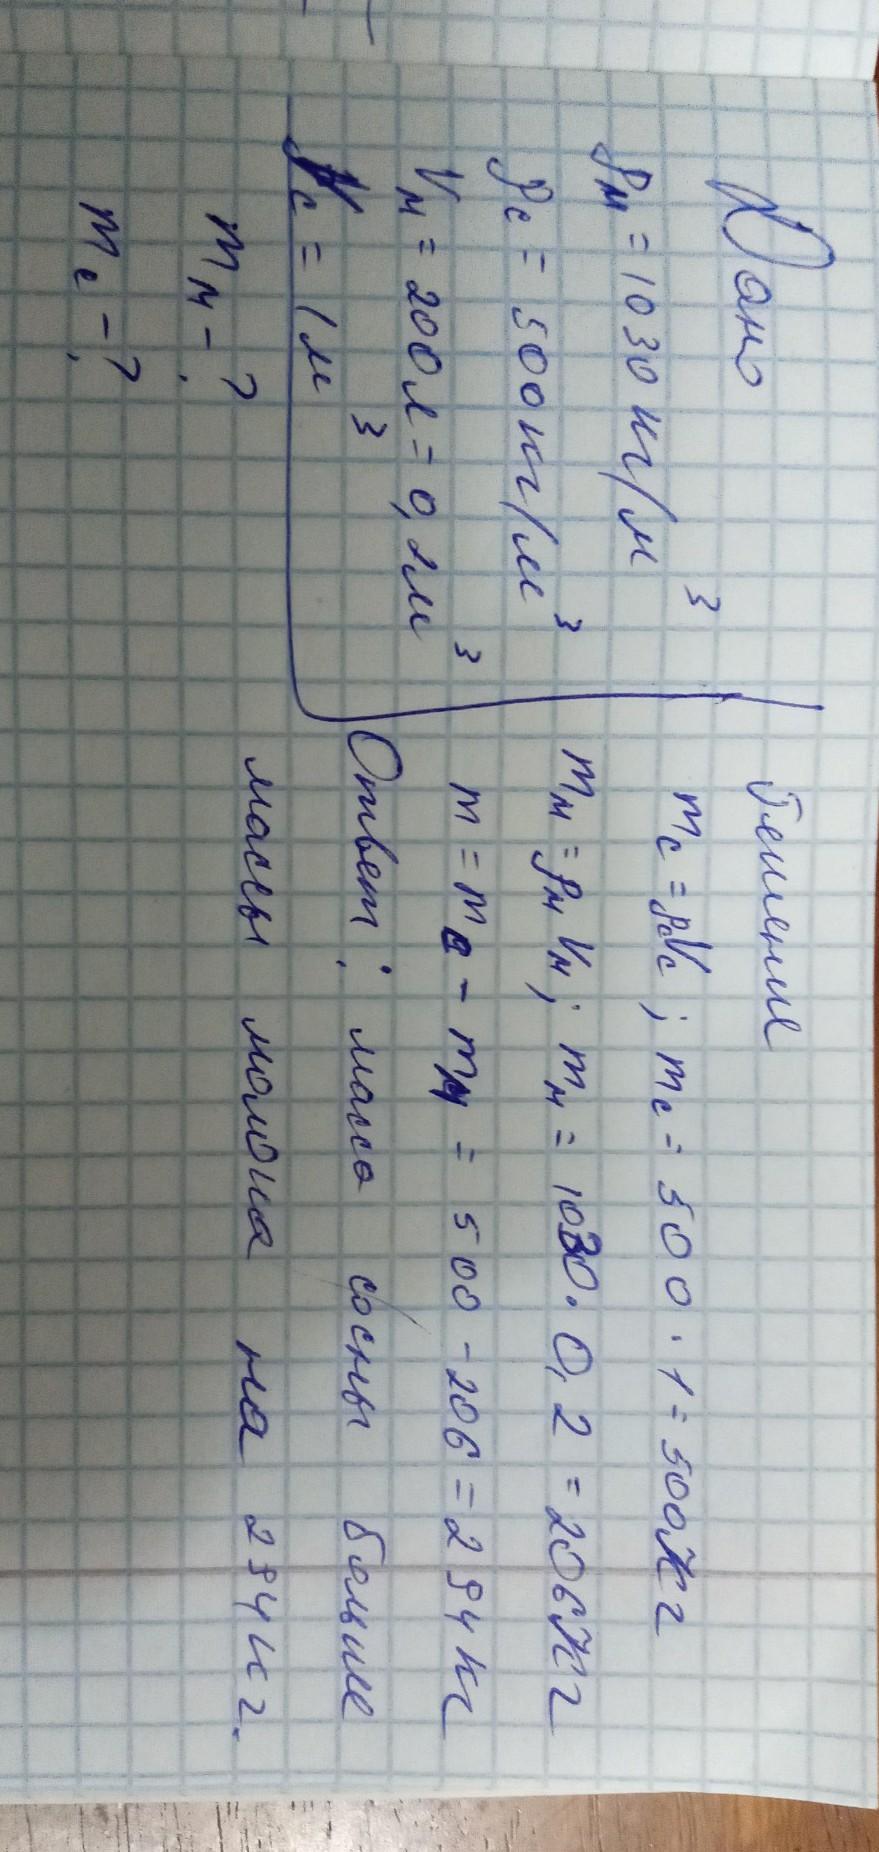 Дано
ρм = 1030 кг/м³
ρс = 500 кг/м³
Vм = 200 л = 0,2 м³
Vс = 1 м³
mм - ?
mс - ?
Решение
mс = ρсVс ; mс = 500 · 1 = 500 кг
mм = ρм Vм ; mм = 1030 · 0,2 = 206 кг
m = mс - mм = 500 - 206 = 294 кг
Ответ : масса сосны больше
массы молока на 294 кг.